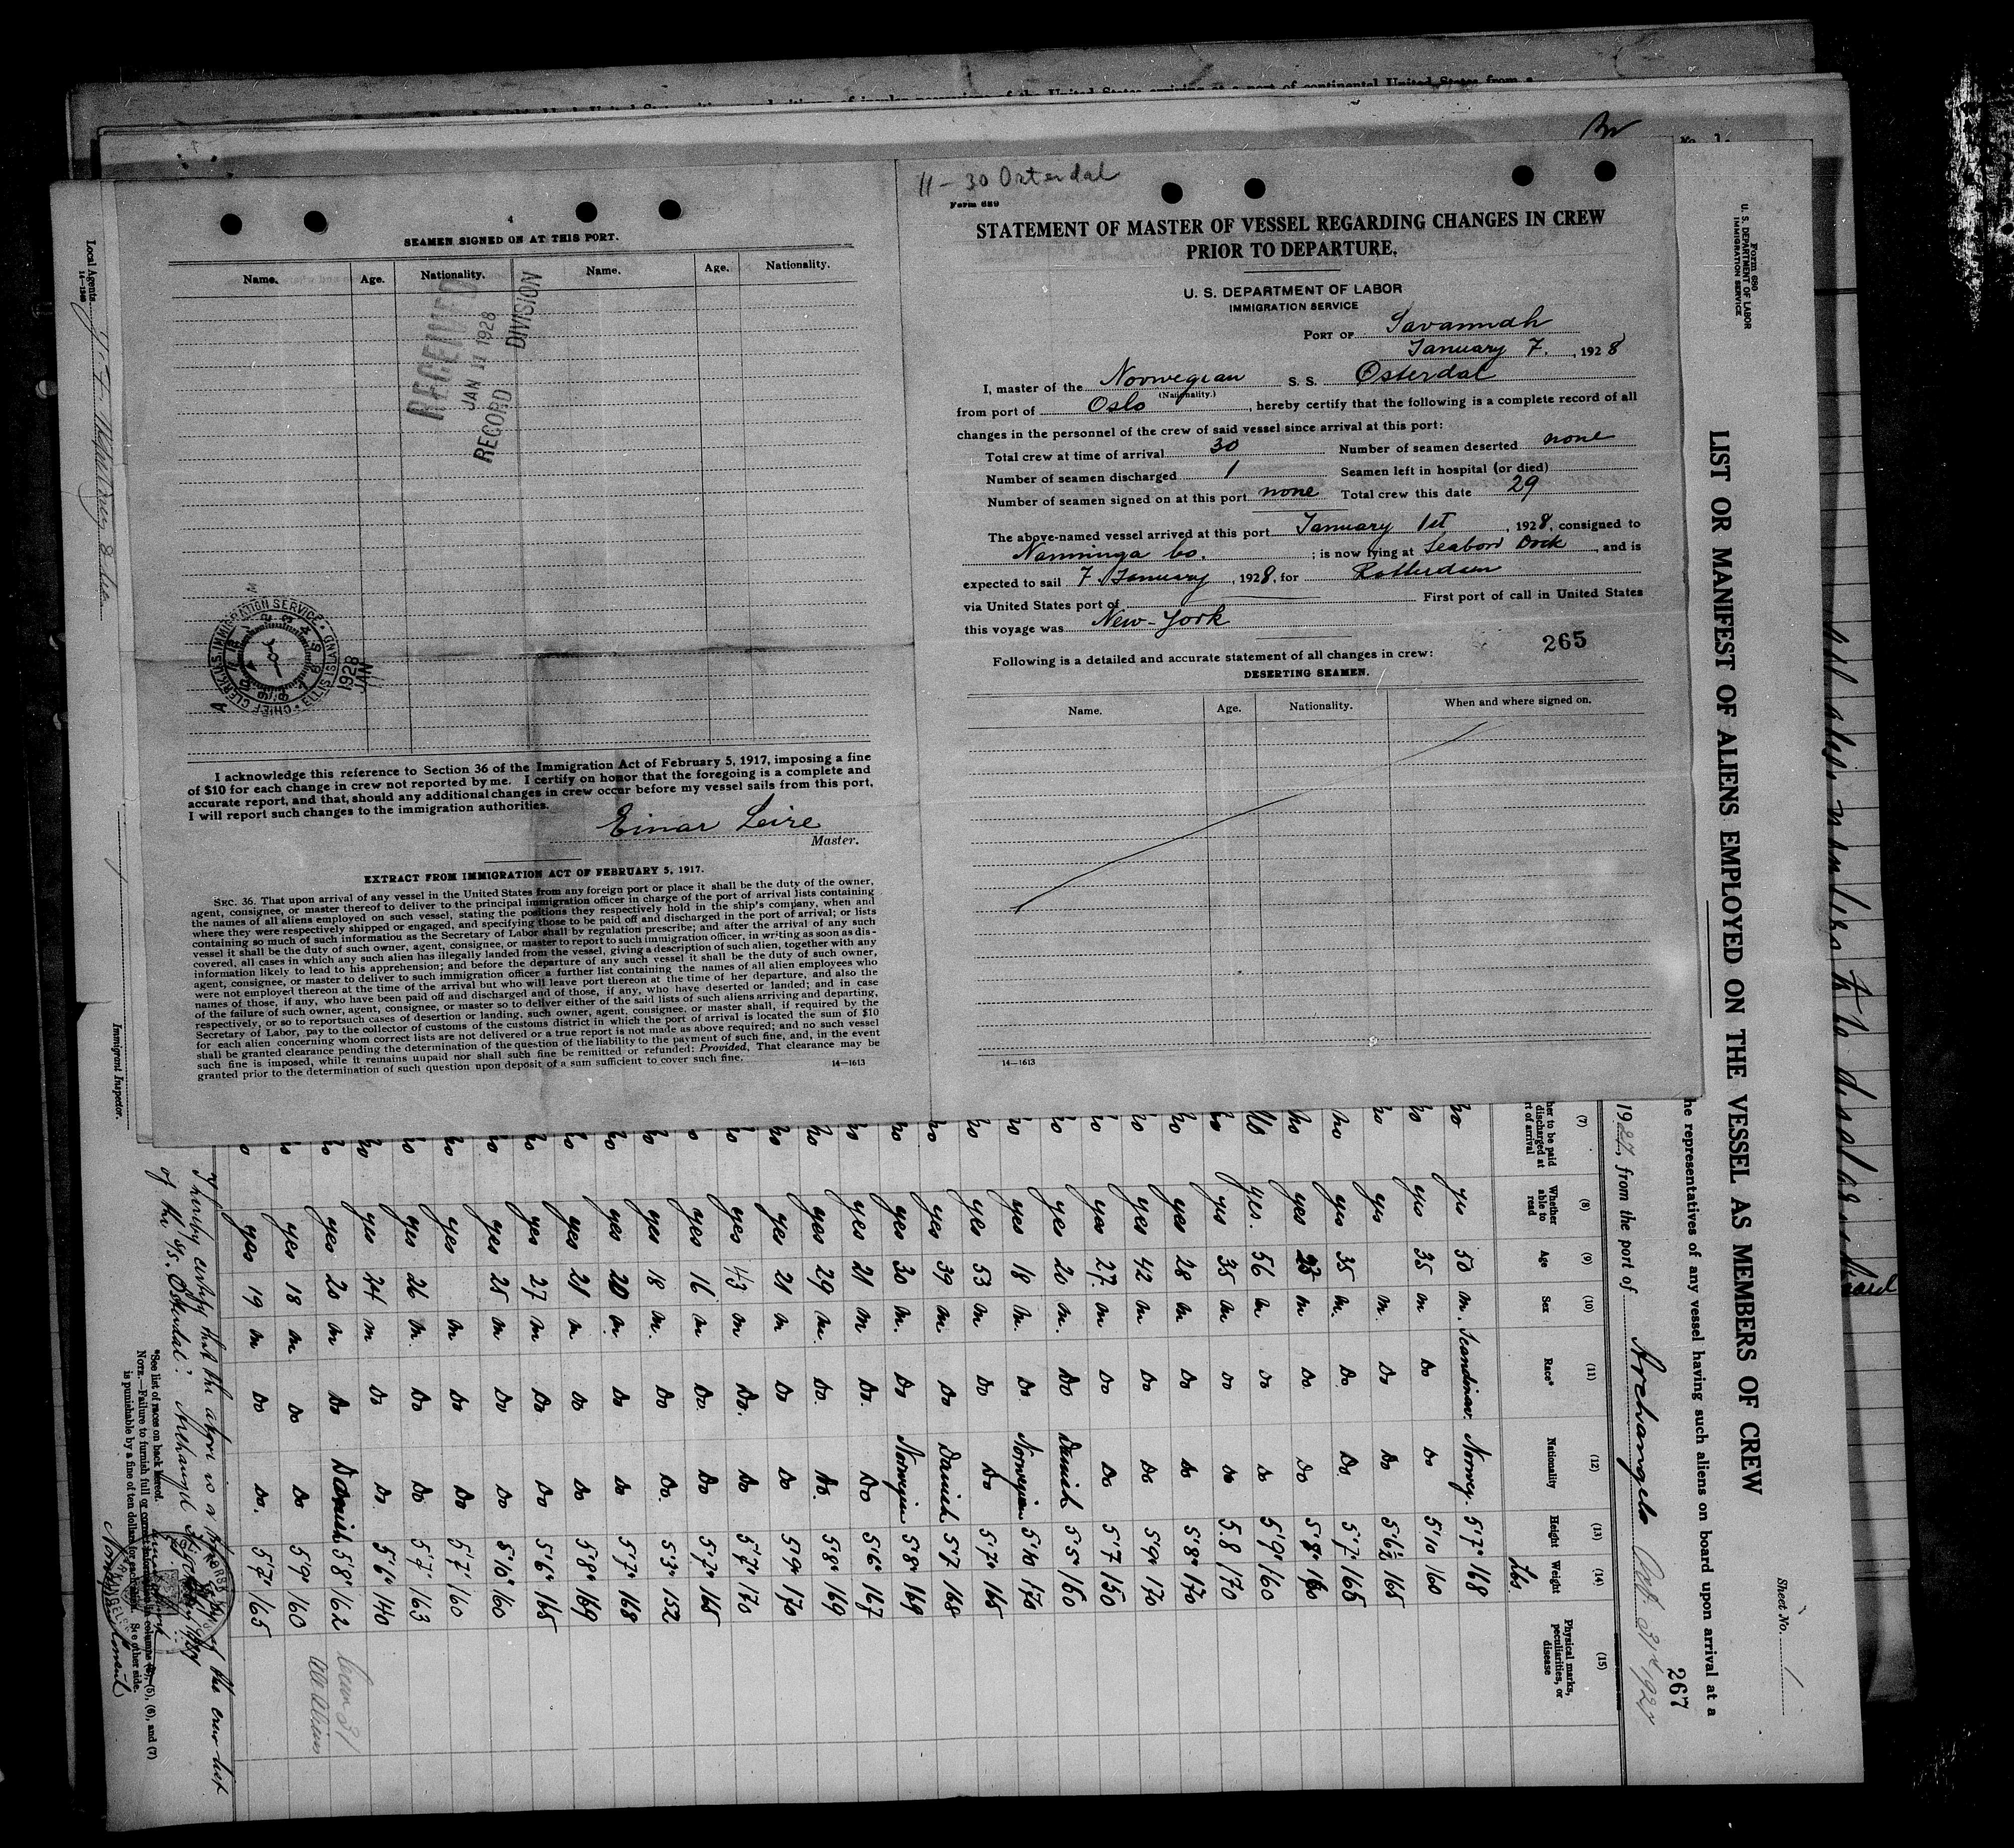 11-30 Osterdal
Form 689
STATEMENT OF MASTER OF VESSEL REGARDING CHANGES IN CREW
PRIOR TO DEPARTURE.
U. S. DEPARTMENT OF LABOR
IMMIGRATION SERVICE
PORT OF Savannah
January 7. , 1928
I, master of the Norwegian S. S. Osterdal
(Nationality.)
from port of Oslo , hereby certify that the following is a complete record of all
changes in the personnel of the crew of said vessel since arrival at this port:
Total crew at time of arrival 30 Number of seamen deserted none
Number of seamen discharged 1 Seamen left in hospital (or died)
Number of seamen signed on at this port none Total crew this date 29
The above-named vessel arrived at this port January 1st , 1928, consigned to
Nanninga Co. ; is now lying at Seabord Dock , and is
expected to sail 7 January , 1928, for Rotterdam
via United States port of First port of call in United States
this voyage was New-York
265
Following is a detailed and accurate statement of all changes in crew:
DESERTING SEAMEN.
Name. Age. Nationality. When and where signed on.
14—1613
4
SEAMEN SIGNED ON AT THIS PORT.
Name. Age. Nationality. Name. Age. Nationality.
RECEIVED
JAN 11 1928
RECORD DIVISION
CHIEF CLERK U.S. IMMIGRATION SERVICE • ELLIS ISLAND
1928
JAN
I acknowledge this reference to Section 36 of the Immigration Act of February 5, 1917, imposing a fine
of $10 for each change in crew not reported by me. I certify on honor that the foregoing is a complete and
accurate report, and that, should any additional changes in crew occur before my vessel sails from this port,
I will report such changes to the immigration authorities.
Einar Leire
Master.
EXTRACT FROM IMMIGRATION ACT OF FEBRUARY 5, 1917.
SEC. 36. That upon arrival of any vessel in the United States from any foreign port or place it shall be the duty of the owner,
agent, consignee, or master thereof to deliver to the principal immigration officer in charge of the port of arrival lists containing
the names of all aliens employed on such vessel, stating the positions they respectively hold in the ship's company, when and
where they were respectively shipped or engaged, and specifying those to be paid off and discharged in the port of arrival; or lists
containing so much of such information as the Secretary of Labor shall by regulation prescribe; and after the arrival of any such
vessel it shall be the duty of such owner, agent, consignee, or master to report to such immigration officer, in writing as soon as dis-
covered, all cases in which any such alien has illegally landed from the vessel, giving a description of such alien, together with any
information likely to lead to his apprehension; and before the departure of any such vessel it shall be the duty of such owner,
agent, consignee, or master to deliver to such immigration officer a further list containing the names of all alien employees who
were not employed thereon at the time of the arrival but who will leave port thereon at the time of her departure, and also the
names of those, if any, who have been paid off and discharged and of those, if any, who have deserted or landed; and in case
of the failure of such owner, agent, consignee, or master so to deliver either of the said lists of such aliens arriving and departing,
respectively, or so to reportsuch cases of desertion or landing, such owner, agent, consignee, or master shall, if required by the
Secretary of Labor, pay to the collector of customs of the customs district in which the port of arrival is located the sum of $10
for each alien concerning whom correct lists are not delivered or a true report is not made as above required; and no such vessel
shall be granted clearance pending the determination of the question of the liability to the payment of such fine, and, in the event
such fine is imposed, while it remains unpaid nor shall such fine be remitted or refunded: Provided, That clearance may be
granted prior to the determination of such question upon deposit of a sum sufficient to cover such fine.
14—1613
Form 680
U. S. DEPARTMENT OF LABOR
IMMIGRATION SERVICE
Sheet No. 1
LIST OR MANIFEST OF ALIENS EMPLOYED ON THE VESSEL AS MEMBERS OF CREW
he representatives of any vessel having such aliens on board upon arrival at a
267
1927, from the port of Archangels Oct. 31st 1927
(7) (8) (9) (10) (11) (12) (13) (14) (15)
her to be paid discharged at rt of arrival Whether able to read Age Sex Race* Nationality Height Weight Physical marks, peculiarities, or disease
Lbs.
no yes 50 m. Scandinav. Norway. 5'7" 168
no yes 35 m Do Do 5'10 160
no yes m. Do Do 5'6½ 165
no yes 35 m. Do. Do 5'7" 165
no yes m Do. Do 5'8" 160
No yes. 56 m Do Do 5'9" 160
no yes 35 m Do Do 5.8 170
no yes 28 m Do Do 5'8" 170
no yes 42 m Do Do 5'9" 170
no yes 27 m Do Do 5'7 150
no yes 20 m. Do Danish 5'5" 160
no yes 18 m. Do Norwegian 5'10 170
no yes 53 m Do Do 5'7" 165
no yes 39 m Do Danish 5'7 168
no yes 30 m. Do Norwegian 5'8" 169
no yes 21 m Do. Do 5'6" 167
no yes 29 m. Do. Do. 5'8" 169
no yes 21 m Do Do 5'9" 170
no yes 43 m Do. Do 5'7" 170
no yes 16 m Do. Do 5'7" 165
no yes 18 m. Do Do. 5'3" 152
no yes 20 m Do Do 5'7" 168
no yes 21 m Do Do 5'8" 169
no yes 27 m. Do. Do 5'6" 165
no yes 25 m Do Do 5'10" 160
no yes m Do Do 5'7" 160
no yes 26 m. Do Do 5'7" 163
no yes 24 m Do Do. 5'6" 140
no yes 20 m Do Danish 5'8" 162
no yes 18 m. Do Do 5'9" 160
no yes 19 m Do Do. 5'7" 165
All Aliens
I hereby certify that the above is a of the crew list
of the S/S. "Osterdal".
*See list of races on back hereof.
NOTE.—Failure to furnish full or correct information in columns (5), (6), and (7)
is punishable by a fine of ten dollars for each alien. See other side.
Local Agents
14—1240
Immigrant Inspector.